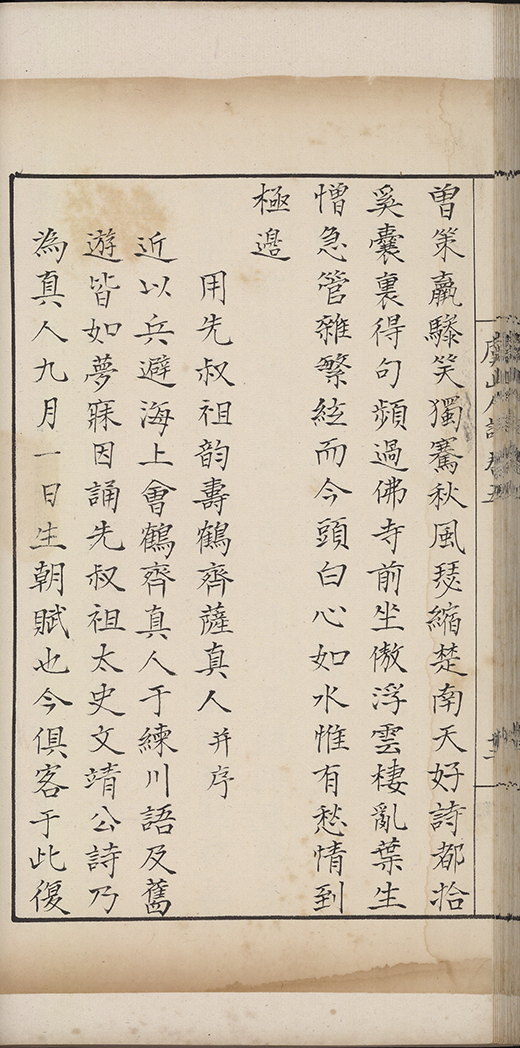 曽策羸驂笑獨騫秋風瑟縮楚南天好詩都拾
奚囊裏得句頻過佛寺前坐傲浮雲棲亂葉生
憎急管雜繁絃而今頭白心如水惟有愁情到
極邊
用先叔祖韵壽鶴齊薩真人并序
近以兵避海上會鶴齊真人于練川語及舊
遊皆如夢寐因誦先叔祖太史文靖公詩乃
為真人九月一日生朝賦也今俱客于此復